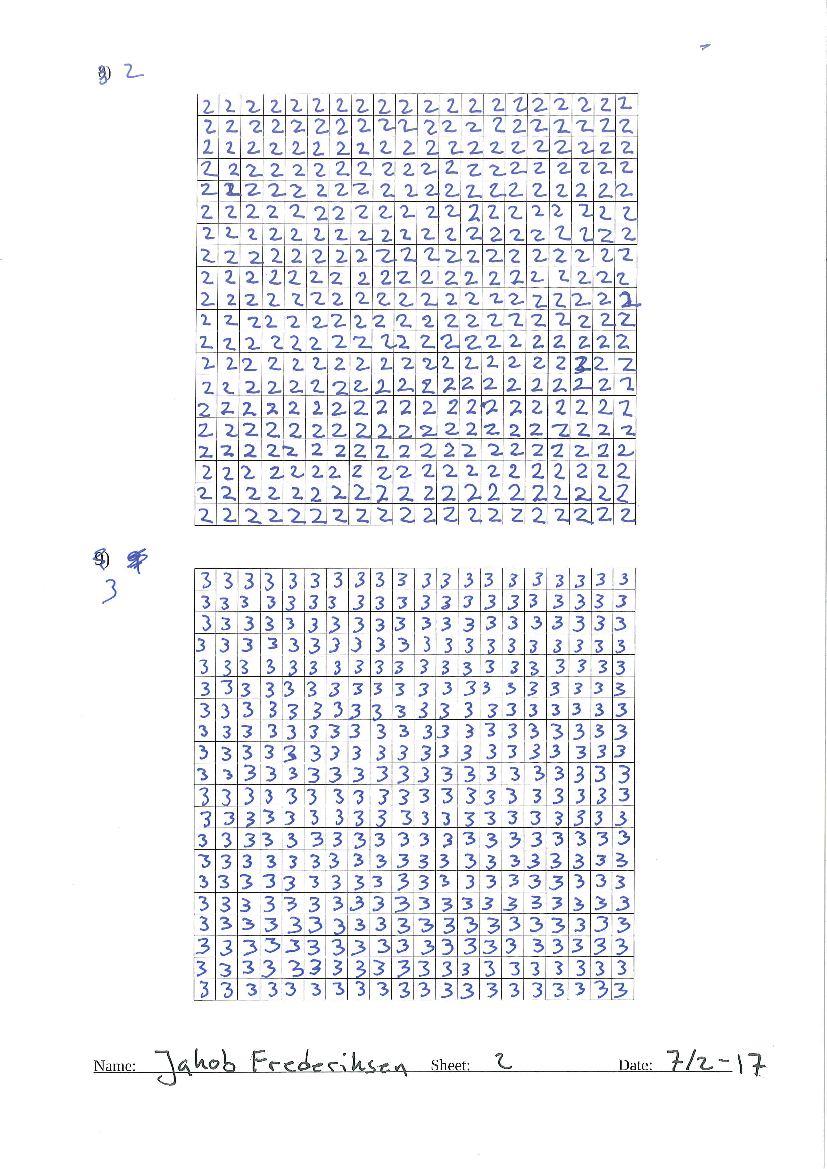 2
2 2 2 2 2 2 2 2 2 2 2 2 2 2 2 2 2 2 2 2
2 2 2 2 2 2 2 2 2 2 2 2 2 2 2 2 2 2 2 2
2 2 2 2 2 2 2 2 2 2 2 2 2 2 2 2 2 2 2 2
2 2 2 2 2 2 2 2 2 2 2 2 2 2 2 2 2 2 2 2
2 2 2 2 2 2 2 2 2 2 2 2 2 2 2 2 2 2 2 2
2 2 2 2 2 2 2 2 2 2 2 2 2 2 2 2 2 2 2 2
2 2 2 2 2 2 2 2 2 2 2 2 2 2 2 2 2 2 2 2
2 2 2 2 2 2 2 2 2 2 2 2 2 2 2 2 2 2 2 2
2 2 2 2 2 2 2 2 2 2 2 2 2 2 2 2 2 2 2 2
2 2 2 2 2 2 2 2 2 2 2 2 2 2 2 2 2 2 2 2
2 2 2 2 2 2 2 2 2 2 2 2 2 2 2 2 2 2 2 2
2 2 2 2 2 2 2 2 2 2 2 2 2 2 2 2 2 2 2 2
2 2 2 2 2 2 2 2 2 2 2 2 2 2 2 2 2 2 2 2
2 2 2 2 2 2 2 2 2 2 2 2 2 2 2 2 2 2 2 2
2 2 2 2 2 2 2 2 2 2 2 2 2 2 2 2 2 2 2 2
2 2 2 2 2 2 2 2 2 2 2 2 2 2 2 2 2 2 2 2
2 2 2 2 2 2 2 2 2 2 2 2 2 2 2 2 2 2 2 2
2 2 2 2 2 2 2 2 2 2 2 2 2 2 2 2 2 2 2 2
2 2 2 2 2 2 2 2 2 2 2 2 2 2 2 2 2 2 2 2
2 2 2 2 2 2 2 2 2 2 2 2 2 2 2 2 2 2 2 2
3
3 3 3 3 3 3 3 3 3 3 3 3 3 3 3 3 3 3 3 3
3 3 3 3 3 3 3 3 3 3 3 3 3 3 3 3 3 3 3 3
3 3 3 3 3 3 3 3 3 3 3 3 3 3 3 3 3 3 3 3
3 3 3 3 3 3 3 3 3 3 3 3 3 3 3 3 3 3 3 3
3 3 3 3 3 3 3 3 3 3 3 3 3 3 3 3 3 3 3 3
3 3 3 3 3 3 3 3 3 3 3 3 3 3 3 3 3 3 3 3
3 3 3 3 3 3 3 3 3 3 3 3 3 3 3 3 3 3 3 3
3 3 3 3 3 3 3 3 3 3 3 3 3 3 3 3 3 3 3 3
3 3 3 3 3 3 3 3 3 3 3 3 3 3 3 3 3 3 3 3
3 3 3 3 3 3 3 3 3 3 3 3 3 3 3 3 3 3 3 3
3 3 3 3 3 3 3 3 3 3 3 3 3 3 3 3 3 3 3 3
3 3 3 3 3 3 3 3 3 3 3 3 3 3 3 3 3 3 3 3
3 3 3 3 3 3 3 3 3 3 3 3 3 3 3 3 3 3 3 3
3 3 3 3 3 3 3 3 3 3 3 3 3 3 3 3 3 3 3 3
3 3 3 3 3 3 3 3 3 3 3 3 3 3 3 3 3 3 3 3
3 3 3 3 3 3 3 3 3 3 3 3 3 3 3 3 3 3 3 3
3 3 3 3 3 3 3 3 3 3 3 3 3 3 3 3 3 3 3 3
3 3 3 3 3 3 3 3 3 3 3 3 3 3 3 3 3 3 3 3
3 3 3 3 3 3 3 3 3 3 3 3 3 3 3 3 3 3 3 3
3 3 3 3 3 3 3 3 3 3 3 3 3 3 3 3 3 3 3 3
Name: Jakob Frederiksen Sheet: 2 Date: 7/2-17